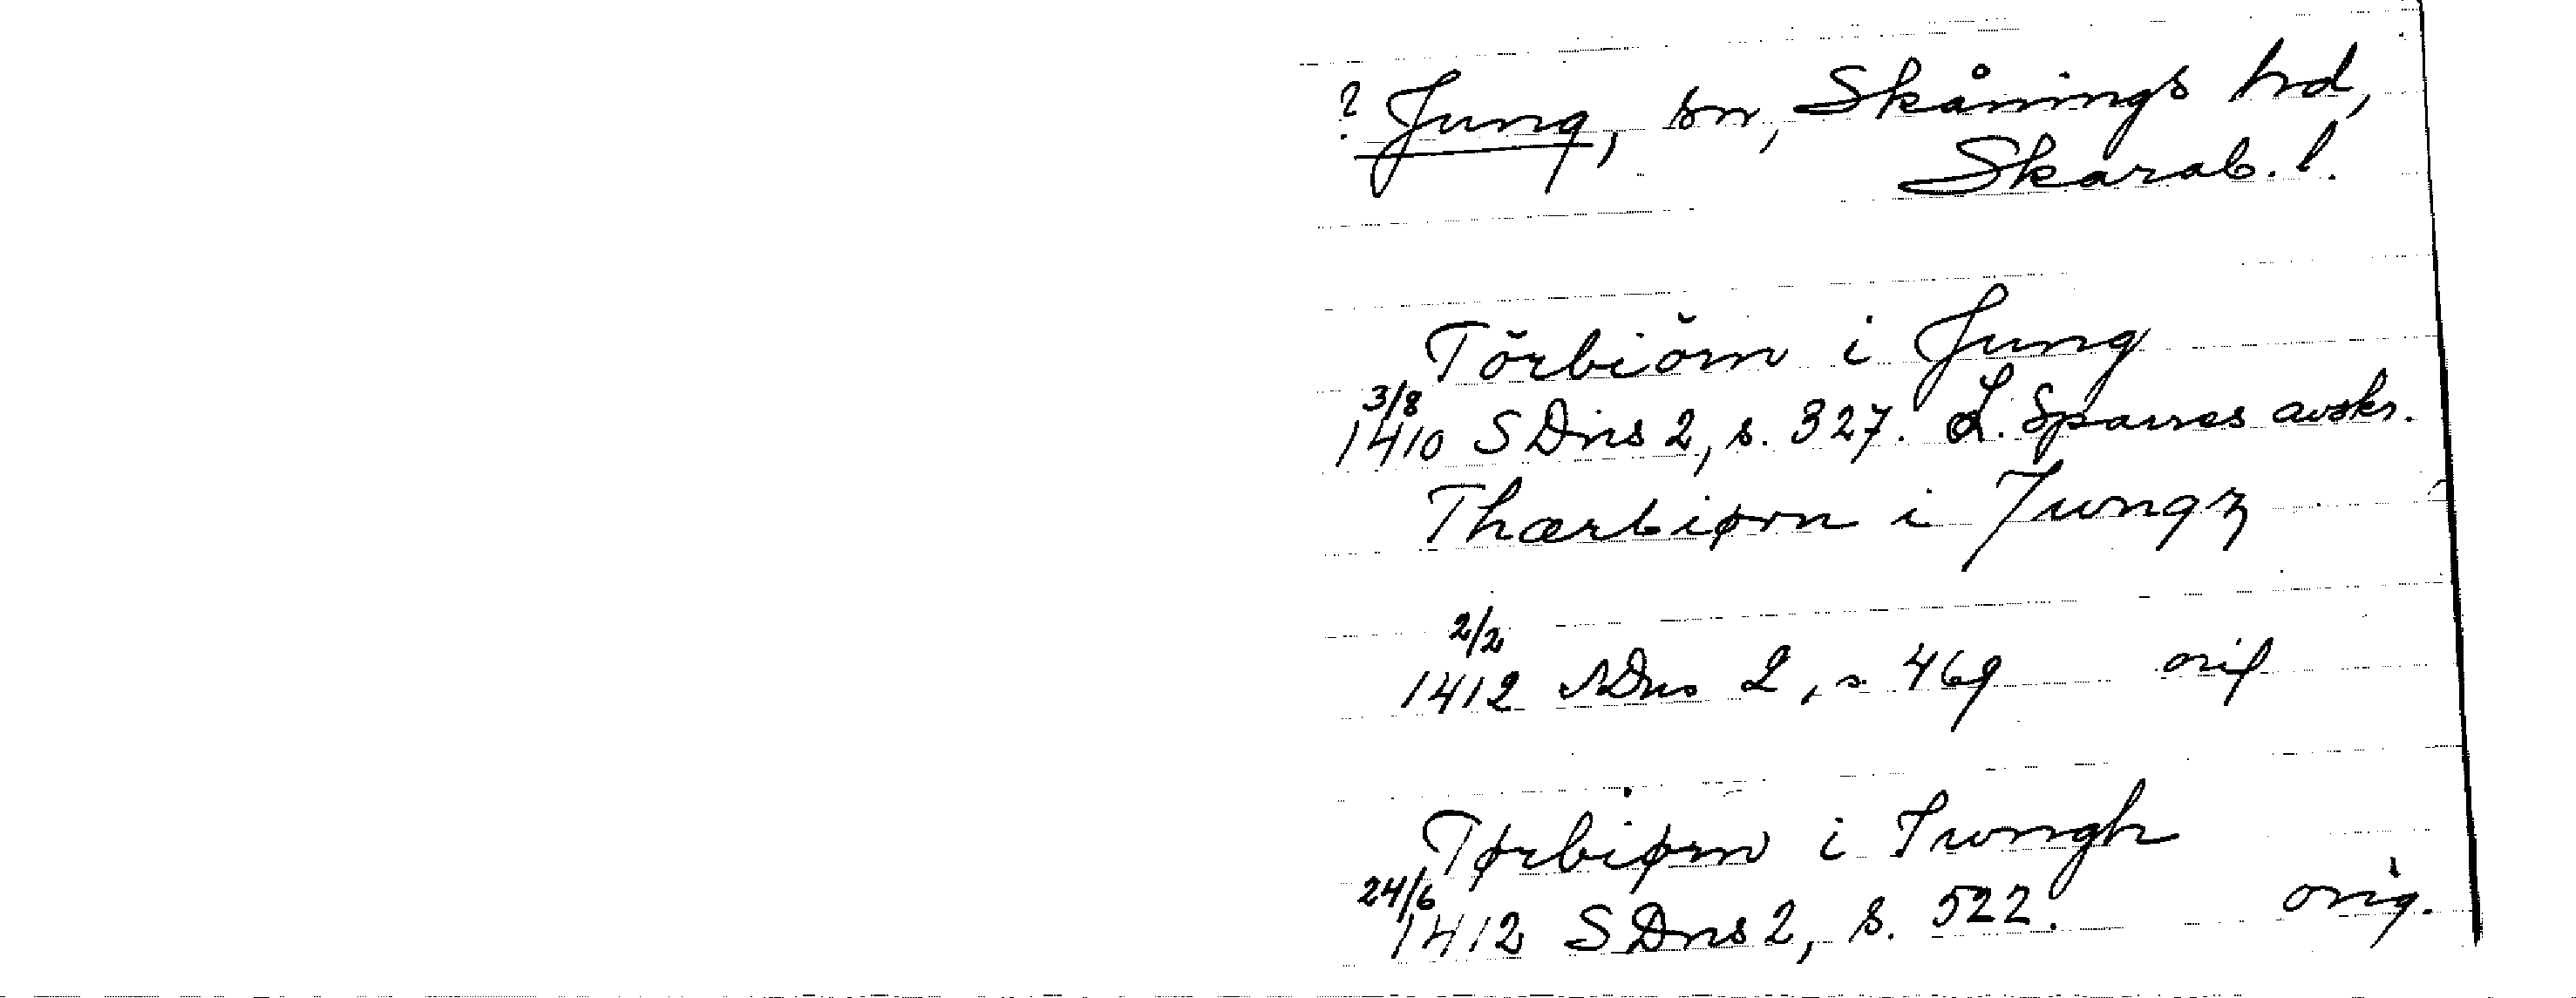 ? Jung, sn, Skånings hd,
Skarab. l.
Törbiörn i Jung
3/8
1410 SDns 2, s. 327. L. Sparres avskr.
Thærbiørn i Jungz
2/2
1412 SDns 2, s. 469 orig
Tørbiørn i Jwngh
24/6
1412 SDns 2, s. 522. orig.